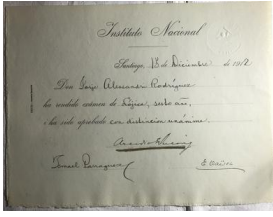 Instituto Nacional
Santiago, 13 Diciembre de 1912
Don Jorje Alessandri Rodríguez
ha rendido exámen de Lójica, sesto año,
i ha sido aprobado con distincion unánime.
Ismael Parraguez